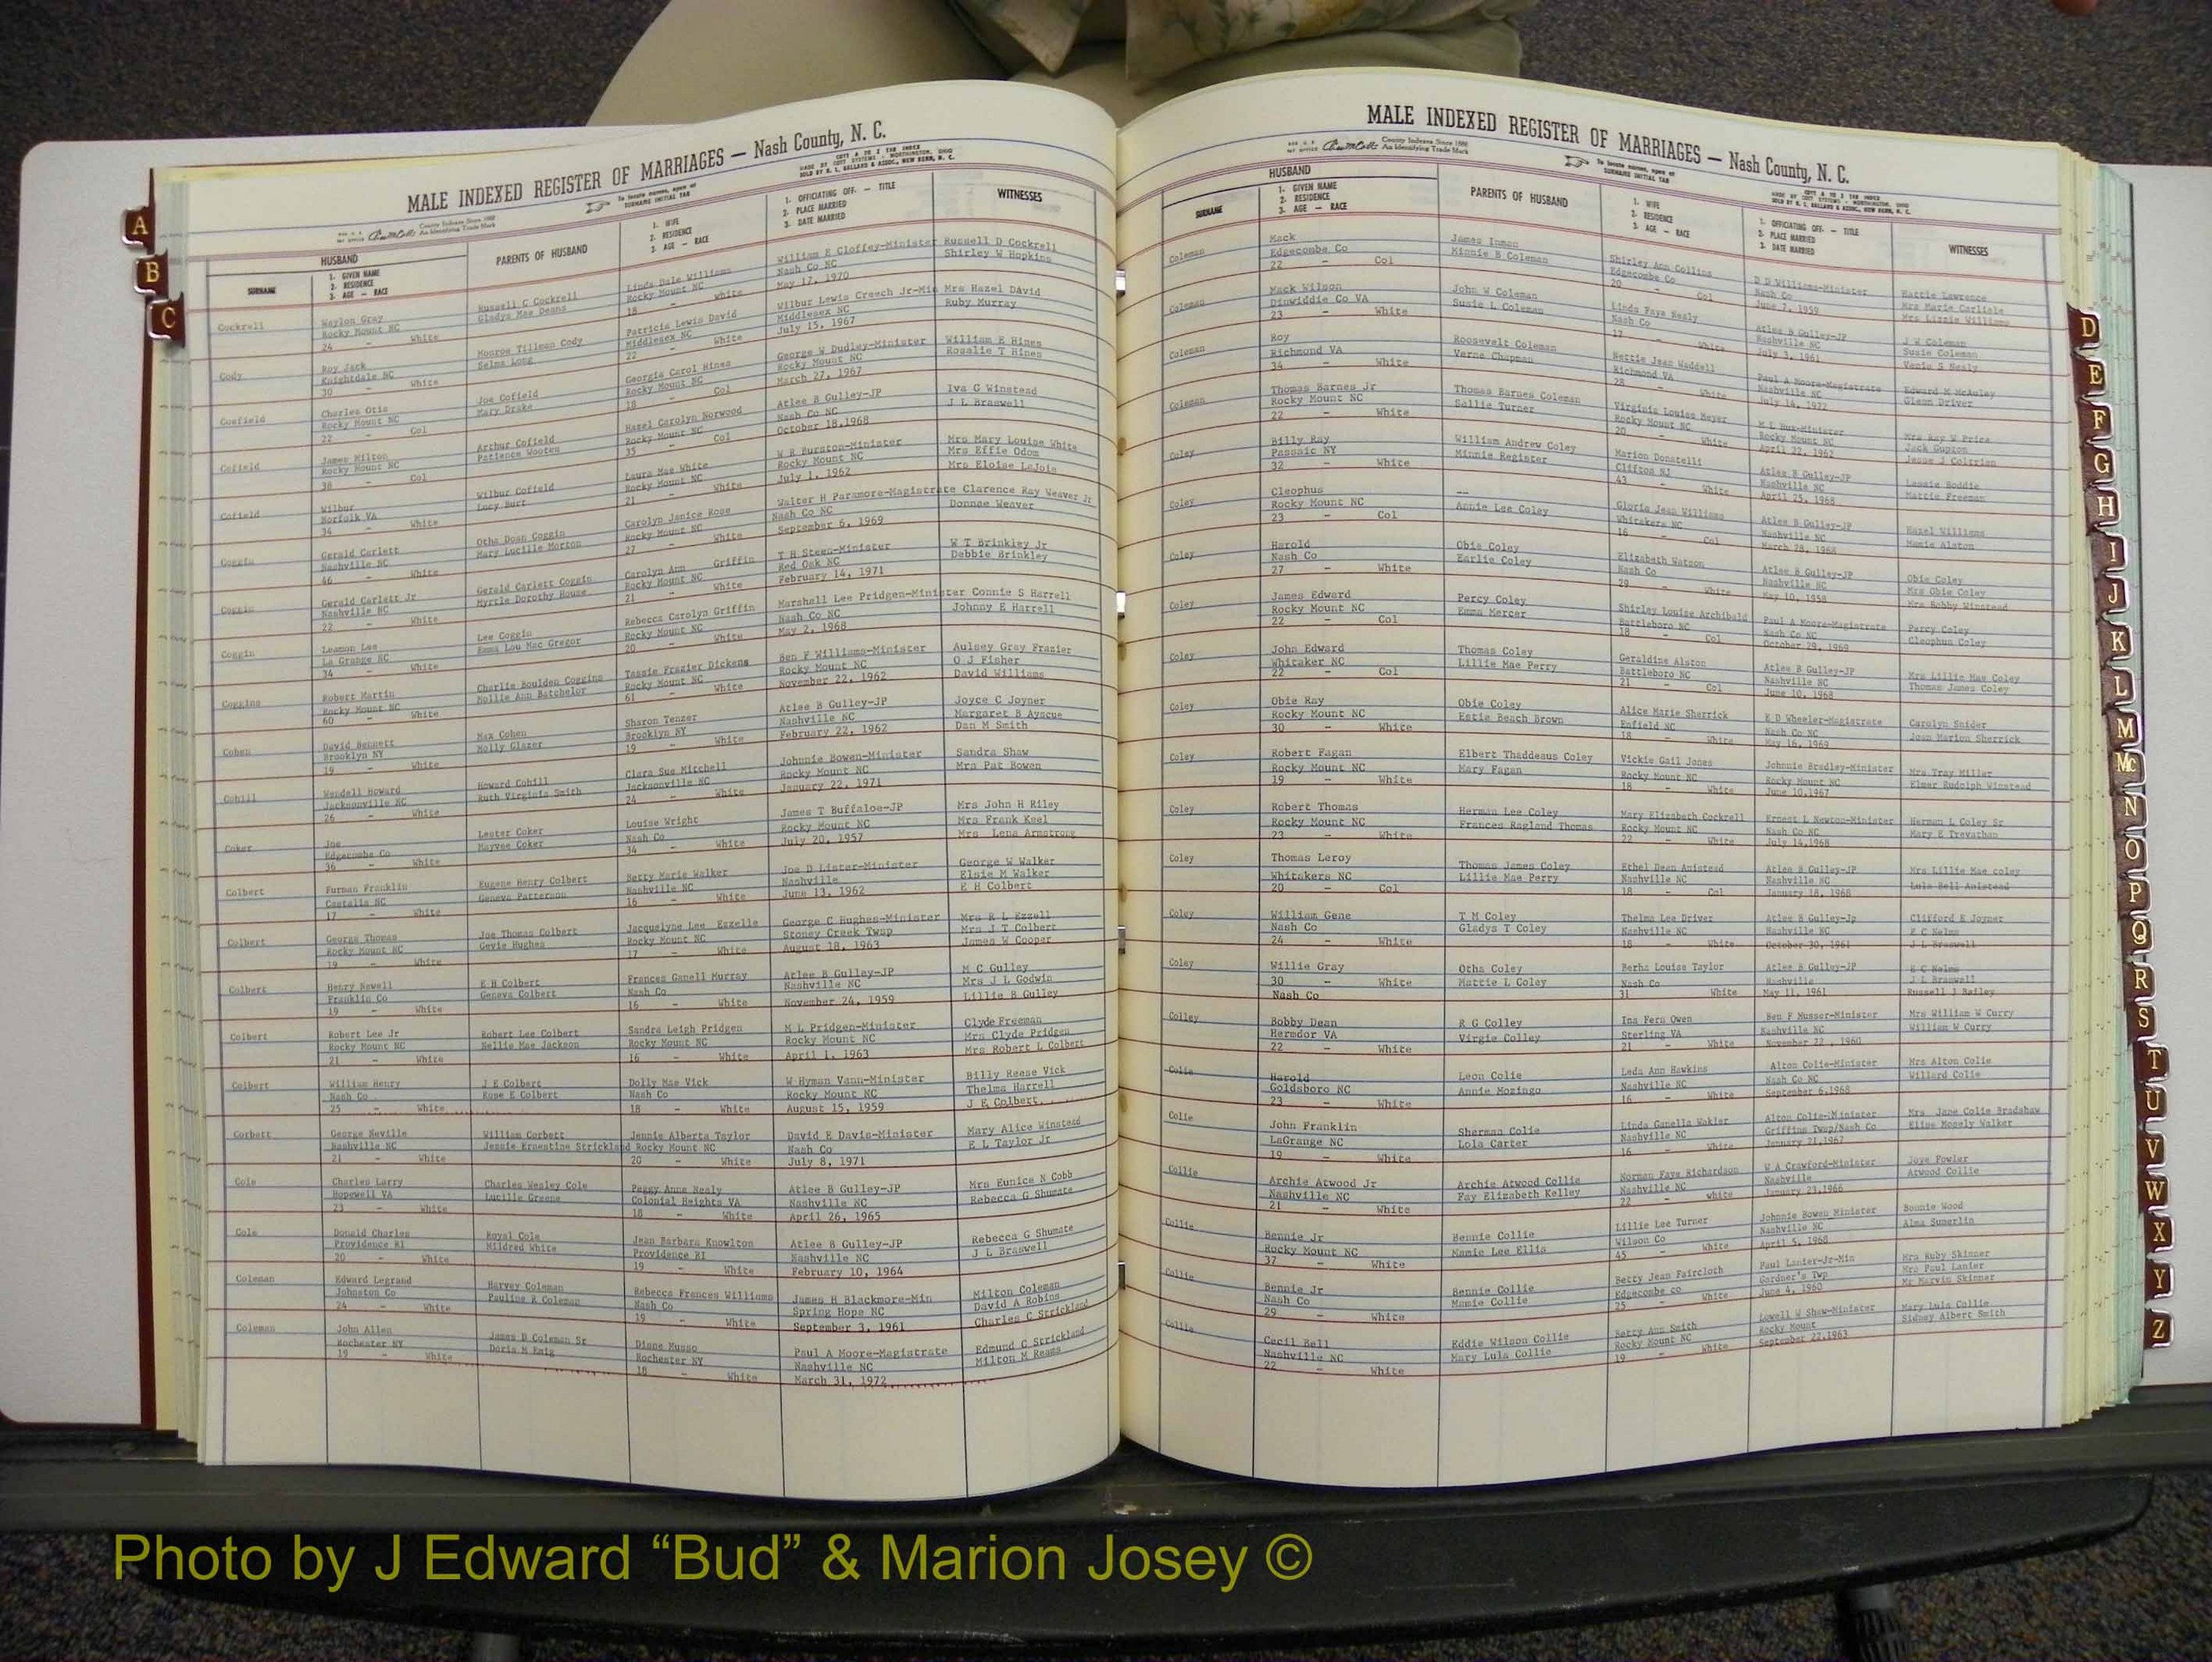 MALE INDEXED REGISTER OF MARRIAGES — Nash County, N. C.
County Indexes Since 1888
An Identifying Trade Mark
To locate names, open at
SURNAME INITIAL TAB
COTT A TO Z TAB INDEX
MADE BY COTT SYSTEMS - WORTHINGTON, OHIO
SOLD BY R. L. BALLARD & ASSOC., NEW BERN, N. C.
HUSBAND
SURNAME
1. GIVEN NAME
2. RESIDENCE
3. AGE — RACE
PARENTS OF HUSBAND
1. WIFE
2. RESIDENCE
3. AGE — RACE
1. OFFICIATING OFF. — TITLE
2. PLACE MARRIED
3. DATE MARRIED
WITNESSES
A
B
C
Cockrell Waylon Gray Russell C Cockrell Linda Dale Williams William E Cloffey-Minister Russell D Cockrell
Rocky Mount NC Gladys Mae Deans Rocky Mount NC Nash Co NC Shirley W Hopkins
24 - White 18 - White May 17, 1970
Cody Roy Jack Monroe Tillman Cody Patricia Lewis David Wilbur Lewis Creech Jr-Mi Mrs Hazel David
Knightdale NC Selma Long Middlesex NC Middlesex NC Ruby Murray
30 - White 22 - White July 15, 1967
Coefield Charles Otis Joe Cofield Georgia Carol Hines George W Dudley-Minister William E Hines
Rocky Mount NC Mary Drake Rocky Mount NC Rocky Mount NC Rosalie T Hines
22 - Col 18 - Col March 27, 1967
Cofield James Milton Arthur Cofield Hazel Carolyn Norwood Atlee B Gulley-JP Iva G Winstead
Rocky Mount NC Patience Wooten Rocky Mount NC Nash Co NC J L Braswell
38 - Col 35 - Col October 18,1968
Cofield Wilbur Wilbur Cofield Laura Mae White W R Burston-Minister Mrs Mary Louise White
Norfolk VA Lucy Burt Rocky Mount NC Rocky Mount NC Mrs Effie Odom
34 - White 21 - White July 1, 1962 Mrs Eloise LaJoie
Coggin Gerald Carlett Otha Doan Coggin Carolyn Janice Rose Walter H Paramore-Magistrate Clarence Ray Weaver Jr
Nashville NC Mary Lucille Morton Rocky Mount NC Nash Co NC Donnae Weaver
46 - White 27 - White September 6, 1969
Coggin Gerald Carlett Jr Gerald Carlett Coggin Carolyn Ann Griffin T H Steen-Minister W T Brinkley Jr
Nashville NC Myrtle Dorothy House Rocky Mount NC Red Oak NC Debbie Brinkley
22 - White 21 - White February 14, 1971
Coggin Leamon Lee Lee Coggin Rebecca Carolyn Griffin Marshall Lee Pridgen-Minister Connie S Harrell
La Grange NC Emma Lou Mac Gregor Rocky Mount NC Nash Co NC Johnny E Harrell
34 - White 20 - White May 2, 1968
Coggins Robert Martin Charlie Boulden Coggins Tassie Frazier Dickens Ben F Williams-Minister Aulsey Gray Frazier
Rocky Mount NC Mollie Ann Batchelor Rocky Mount NC Rocky Mount NC O J Fisher
60 - White 61 - White November 22, 1962 David Williams
Cohen David Bennett Max Cohen Sharon Tenzer Atlee B Gulley-JP Joyce C Joyner
Brooklyn NY Molly Glazer Brooklyn NY Nashville NC Margaret B Ayscue
19 - White 19 - White February 22, 1962 Dan M Smith
Cohill Wendell Howard Howard Cohill Clara Sue Mitchell Johnnie Bowen-Minister Sandra Shaw
Jacksonville NC Ruth Virginia Smith Jacksonville NC Rocky Mount NC Mrs Pat Bowen
26 - White 24 - White January 22, 1971
Coker Joe Lester Coker Louise Wright James T Buffaloe-JP Mrs John H Riley
Edgecombe Co Mayvee Coker Nash Co Rocky Mount NC Mrs Frank Keel
36 - White 34 - White July 20, 1957 Mrs Lena Armstrong
Colbert Furman Franklin Eugene Henry Colbert Betty Marie Walker Joe D Lister-Minister George W Walker
Castalia NC Geneva Patterson Nashville NC Nashville Elsie M Walker
17 - White 16 - White June 13, 1962 E H Colbert
Colbert George Thomas Joe Thomas Colbert Jacquelyne Lee Ezzelle George C Hughes-Minister Mrs R L Ezzell
Rocky Mount NC Gevie Hughes Rocky Mount NC Stoney Creek Twsp Mrs J T Colbert
19 - White 17 - White August 18, 1963 James W Cooper
Colbert Henry Sewell E H Colbert Frances Ganell Murray Atlee B Gulley-JP M C Gulley
Franklin Co Geneva Colbert Nash Co Nashville NC Mrs J L Godwin
19 - White 16 - White November 24, 1959 Lillie B Gulley
Colbert Robert Lee Jr Robert Lee Colbert Sandra Leigh Pridgen M L Pridgen-Minister Clyde Freeman
Rocky Mount NC Nellie Mae Jackson Rocky Mount NC Rocky Mount NC Mrs Clyde Pridgen
21 - White 16 - White April 1, 1963 Mrs Robert L Colbert
Colbert William Henry J E Colbert Dolly Mae Vick W Hyman Vann-Minister Billy Reese Vick
Nash Co Rose E Colbert Nash Co Rocky Mount NC Thelma Harrell
25 - White 18 - White August 15, 1959 J E Colbert
Corbett George Neville William Corbett Jennie Alberta Taylor David E Davis-Minister Mary Alice Winstead
Nashville NC Jessie Ernestine Strickland Rocky Mount NC Nash Co E L Taylor Jr
21 - White 20 - White July 8, 1971
Cole Charles Larry Charles Wesley Cole Peggy Anne Nealy Atlee B Gulley-JP Mrs Eunice N Cobb
Hopewell VA Lucille Greene Colonial Heights VA Nashville NC Rebecca G Shumate
23 - White 18 - White April 26, 1965
Cole Donald Charles Royal Cole Jean Barbara Knowlton Atlee B Gulley-JP Rebecca G Shumate
Providence RI Mildred White Providence RI Nashville NC J L Braswell
20 - White 19 - White February 10, 1964
Coleman Edward Legrand Harvey Coleman Rebecca Frances Williams James H Blackmore-Min Milton Coleman
Johnston Co Pauline R Coleman Nash Co Spring Hope NC David A Robins
24 - White 19 - White September 3, 1961 Charles C Strickland
Coleman John Allen James D Coleman Sr Diane Russo Paul A Moore-Magistrate Edmund C Strickland
Rochester NY Doris M Emig Rochester NY Nashville NC Milton M Reams
19 - White 18 - White March 31, 1972
MALE INDEXED REGISTER OF MARRIAGES — Nash County, N. C.
County Indexes Since 1888
An Identifying Trade Mark
To locate names, open at
SURNAME INITIAL TAB
COTT A TO Z TAB INDEX
MADE BY COTT SYSTEMS - WORTHINGTON, OHIO
SOLD BY R. L. BALLARD & ASSOC., NEW BERN, N. C.
HUSBAND
SURNAME
1. GIVEN NAME
2. RESIDENCE
3. AGE — RACE
PARENTS OF HUSBAND
1. WIFE
2. RESIDENCE
3. AGE — RACE
1. OFFICIATING OFF. — TITLE
2. PLACE MARRIED
3. DATE MARRIED
WITNESSES
Coleman Mack James Inman Shirley Ann Collins D D Williams-Minister Hattie Lawrence
Edgecombe Co Minnie B Coleman Edgecombe Co Nash Co Mrs Marie Carlisle
22 - Col 20 - Col June 7, 1959 Mrs Lizzie Williams
Coleman Mack Wilson John W Coleman Linda Faye Nealy Atlee B Gulley-JP J W Coleman
Dinwiddie Co VA Susie L Coleman Nash Co Nashville NC Susie Coleman
23 - White 17 - White July 3, 1961 Venie S Nealy
Coleman Roy Roosevelt Coleman Bettie Jean Waddell Paul A Moore-Magistrate Edward M McAuley
Richmond VA Verne Chapman Richmond VA Nashville NC Glenn Driver
34 - White 28 - White July 14, 1972
Coleman Thomas Barnes Jr Thomas Barnes Coleman Virginia Louise Meyer M L Hux-Minister Mrs Ray W Price
Rocky Mount NC Sallie Turner Rocky Mount NC Rocky Mount NC Jack Gupton
22 - White 20 - White April 22, 1962 Jesse J Coltrien
Coley Billy Ray William Andrew Coley Marion Donatelli Atlee B Gulley-JP Lessie Boddie
Passaic NY Minnie Register Clifton NJ Nashville NC Mattie Freeman
32 - White 43 - White April 25, 1968
Coley Cleophus -- Gloria Jean Williams Atlee B Gulley-JP Hazel Williams
Rocky Mount NC Annie Lee Coley Whitakers NC Nashville NC Mamie Alston
23 - Col 16 - Col March 28, 1968
Coley Harold Obie Coley Elizabeth Watson Atlee B Gulley-JP Obie Coley
Nash Co Earlie Coley Nash Co Nashville NC Mrs Obie Coley
27 - White 29 - White May 10, 1958 Mrs Bobby Winstead
Coley James Edward Percy Coley Shirley Louise Archibald Paul A Moore-Magistrate Percy Coley
Rocky Mount NC Emma Mercer Battleboro NC Nash Co NC Cleophus Coley
22 - Col 18 - Col October 29, 1969
Coley John Edward Thomas Coley Geraldine Alston Atlee B Gulley-JP Mrs Lillie Mae Coley
Whitaker NC Lillie Mae Perry Battleboro NC Nashville NC Thomas James Coley
22 - Col 21 - Col June 10, 1968
Coley Obie Ray Obie Coley Alice Marie Sherrick E D Wheeler-Magistrate Carolyn Snider
Rocky Mount NC Estie Beach Brown Enfield NC Nash Co NC Jean Marion Sherrick
30 - White 18 - White May 16, 1969
Coley Robert Fagan Elbert Thaddeaus Coley Vickie Gail Jones Johnnie Bradley-Minister Mrs Tray Miller
Rocky Mount NC Mary Fagan Rocky Mount NC Rocky Mount NC Elmer Rudolph Winstead
19 - White 18 - White June 10,1967
Coley Robert Thomas Herman Lee Coley Mary Elizabeth Cockrell Ernest L Newton-Minister Herman L Coley Sr
Rocky Mount NC Frances Ragland Thomas Rocky Mount NC Nash Co NC Mary E Trevathan
23 - White 22 - White July 14,1968
Coley Thomas Leroy Thomas James Coley Ethel Dean Anistead Atlee B Gulley-JP Mrs Lillie Mae coley
Whitakers NC Lillie Mae Perry Nashville NC Nashville NC Lula Bell Anistead
20 - Col 18 - Col January 18, 1968
Coley William Gene T M Coley Thelma Lee Driver Atlee B Gulley-Jp Clifford E Joyner
Nash Co Gladys T Coley Nashville NC Nashville NC E C Nelms
24 - White 18 - White October 30, 1961 J L Braswell
Coley Willie Gray Otha Coley Berha Louise Taylor Atlee B Gulley-JP E C Nelms
30 - White Mattie L Coley Nash Co Nashville J L Braswell
Nash Co 31 White May 11, 1961 Russell J Bailey
Colley Bobby Dean R G Colley Ina Fern Owen Ben F Musser-Minister Mrs William W Curry
Hermdor VA Virgie Colley Sterling VA Nashville NC William W Curry
22 - White 21 - White November 22 , 1960
Colie Harold Leon Colie Leda Ann Hawkins Alton Colie-Minister Mrs Alton Colie
Goldsboro NC Annie Mozingo Nashville NC Nash Co NC Willard Colie
23 - White 16 - White September 6,1968
Colie John Franklin Sherman Colie Linda Ganella Wakler Alton Colie-Minister Mrs Jane Colie Bradshaw
LaGrange NC Lola Carter Nashville NC Griffins Twsp/Nash Co Elise Mosely Walker
19 - White 16 - White January 21,1967
Collie Archie Atwood Jr Archie Atwood Collie Norman Faye Richardson W A Crawford-Minister Joye Fowler
Nashville NC Fay Elizabeth Kelley Nashville NC Nashville Atwood Collie
21 - White 22 - white January 23,1966
Collie Bennie Jr Bennie Collie Lillie Lee Turner Johnnie Bowen Minister Bonnie Wood
Rocky Mount NC Mamie Lee Ellis Wilson Co Nashville NC Alma Sumerlin
37 - White 45 - White April 5, 1968
Collie Bennie Jr Bennie Collie Betty Jean Faircloth Paul Lanier-Jr-Min Mrs Ruby Skinner
Nash Co Mamie Collie Edgecombe co Gardner's Twp Mrs Paul Lanier
29 - White 25 - White June 4, 1960 Mr Marvin Skinner
Collie Cecil Bell Eddie Wilson Collie Betty Ann Smith Lowell W Shaw-Minister Mary Lula Collie
Nashville NC Mary Lula Collie Rocky Mount NC Rocky Mount Sidney Albert Smith
22 - White 19 - White September 22,1963
D
E
F
G
H
I
J
K
L
M
Mc
N
O
P
Q
R
S
T
U
V
W
X
Y
Z
Photo by J Edward “Bud” & Marion Josey ©